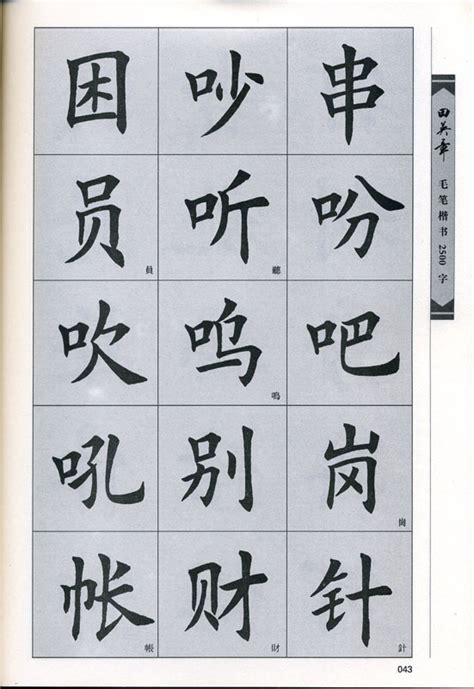 困 吵 串
员 員 听 聽 吩
吹 呜 嗚 吧
吼 别 岗 崗
帐 帳 财 財 针 針
田英章
毛笔楷书2500字
043